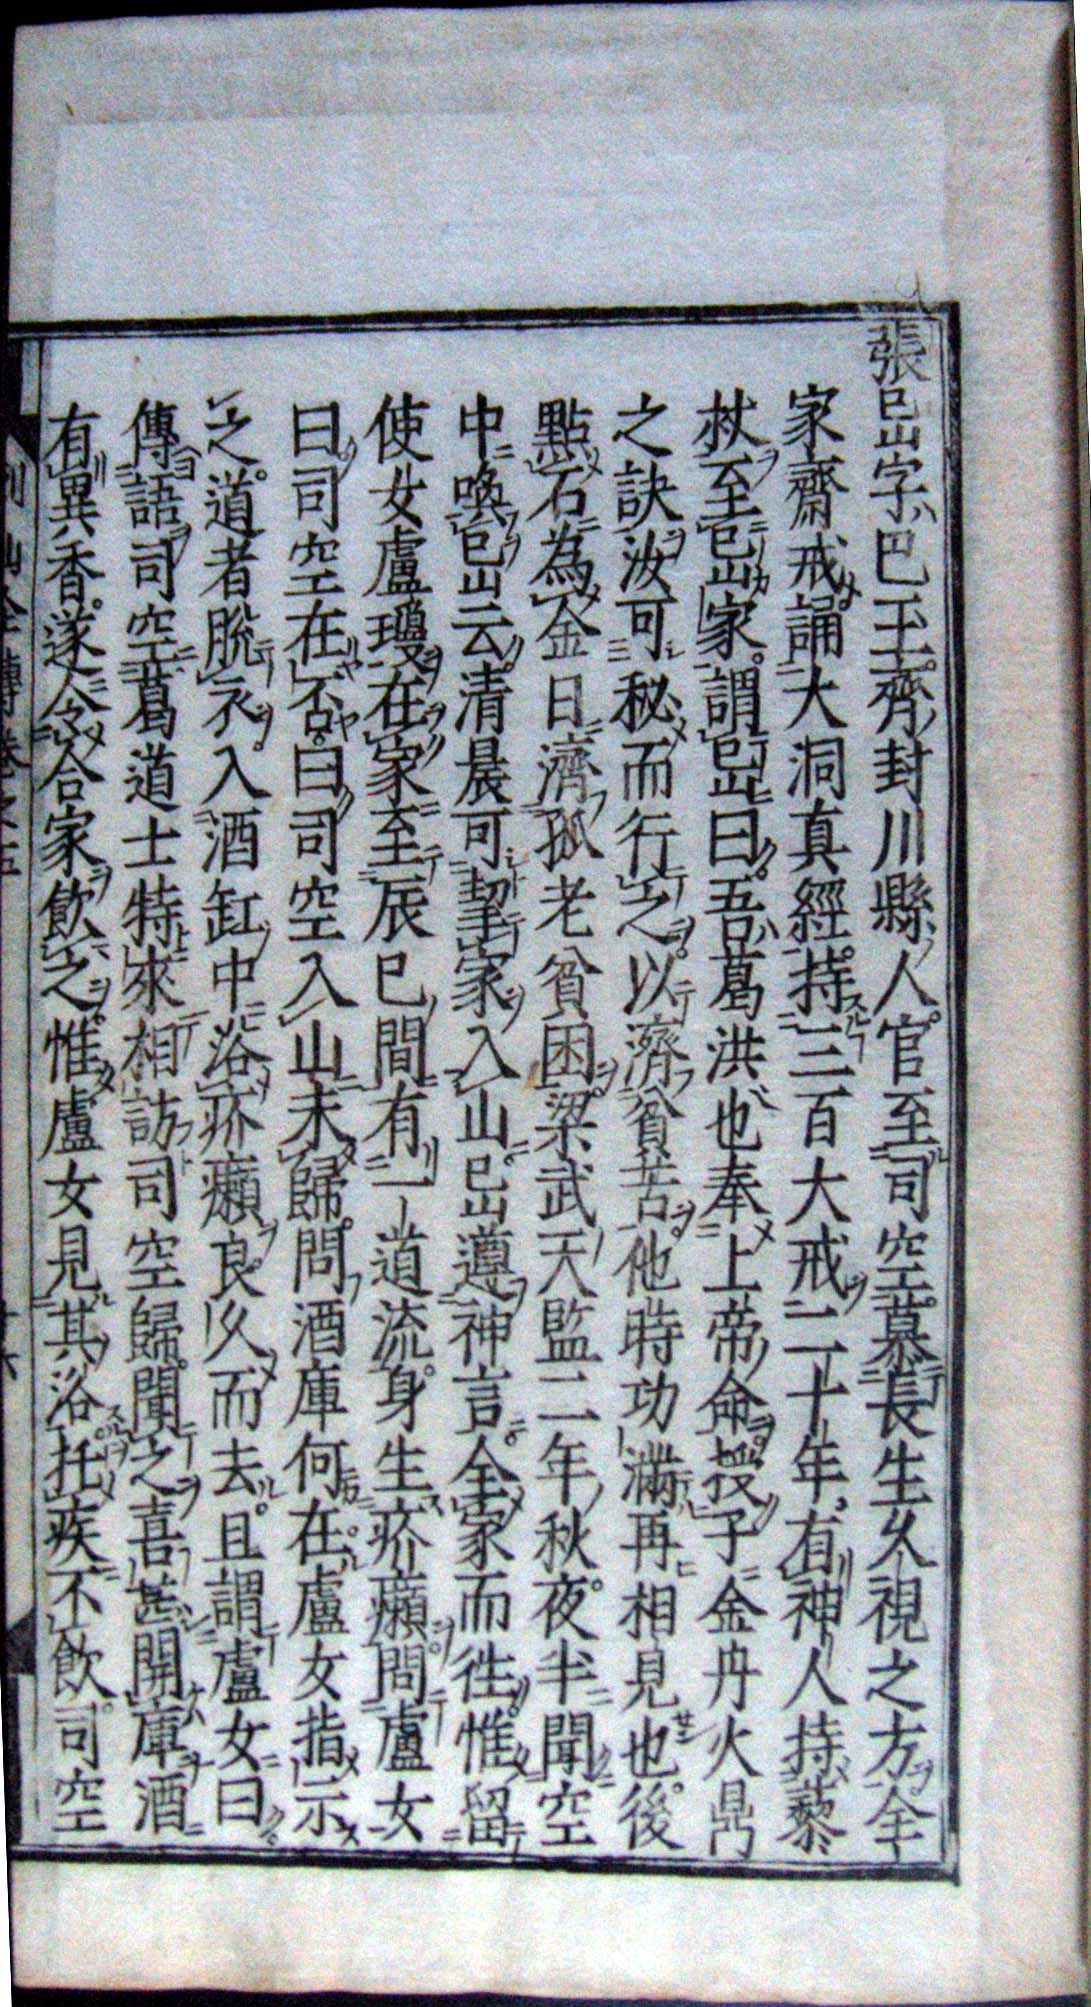 張㠶字巴玉齊封川縣人官至司空慕長生久視之方全
家齋戒誦大洞真經持三百大戒二十年有神人持藜
杖至㠶家謂㠶曰吾葛洪也奉上帝命授子金丹火鼎
之訣汝可秘而行之以濟貧苦他時功滿再相見也後
點石為金日濟孤老貧困梁武天監二年秋夜半聞空
中喚㠶云清晨可挈家入山㠶遵神言全家而徃惟留
使女盧瓊在家至辰巳間有一道流身生疥癩問盧女
曰司空在否曰司空入山未歸問酒庫何在盧女指示
之道者脫衣入酒缸中浴疥癩良久而去且謂盧女曰
傳語司空葛道士特來相訪司空歸聞之喜甚開庫酒
有異香遂令合家飲之惟盧女見其浴托疾不飲司空